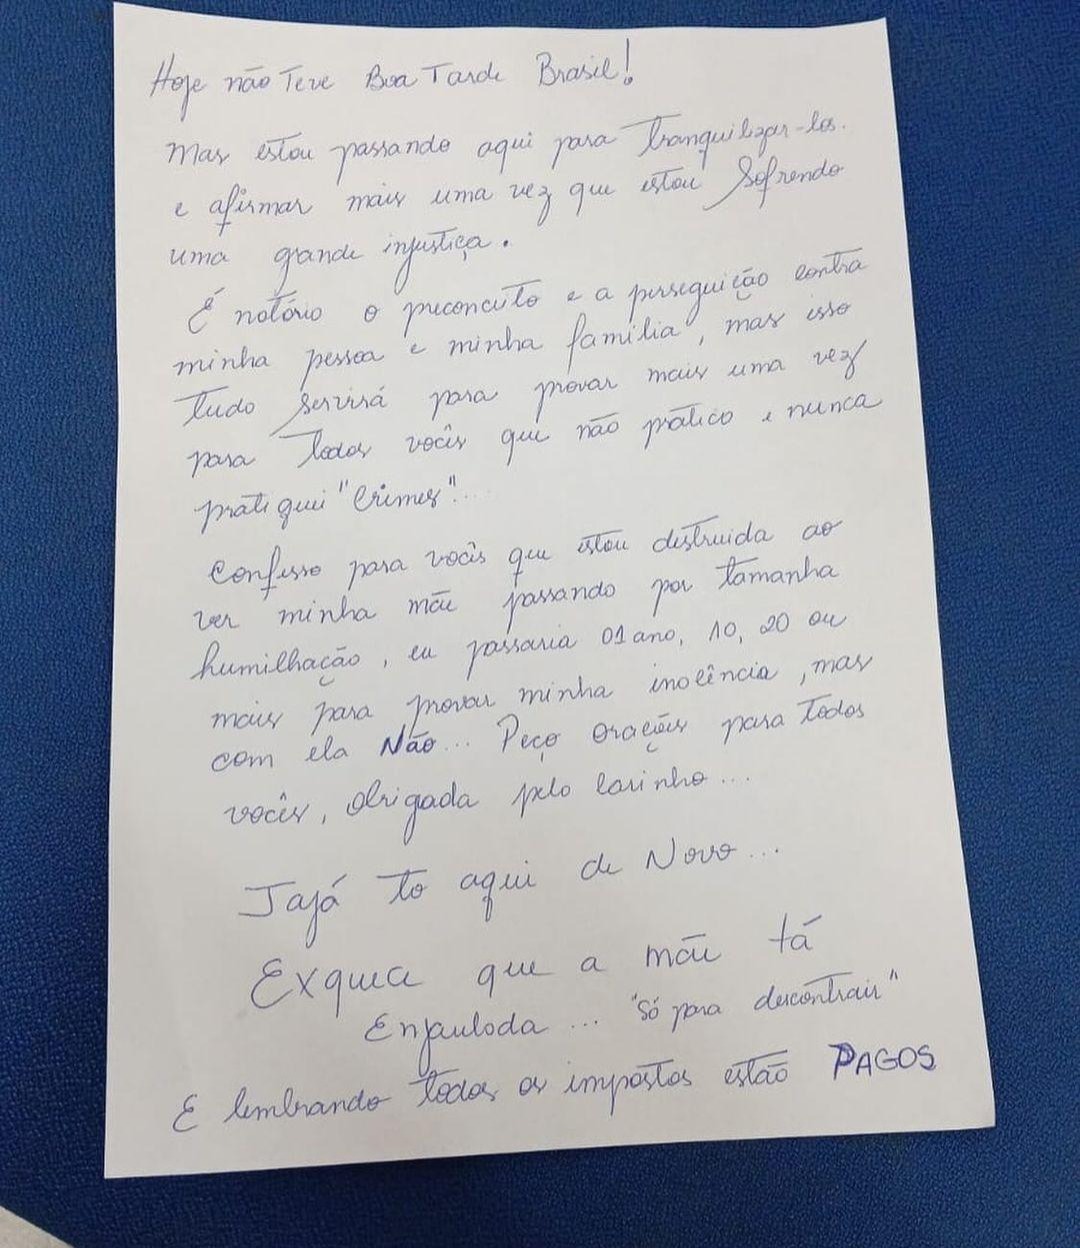 Hoje não Teve Boa Tarde Brasil!
Mas estou passando aqui para Tranquilizar-los.
e afirmar mais uma vez que estou Sofrendo
uma grande injustiça.
É notório o preconceito e a perseguição contra
minha pessoa e minha família, mas isso
Tudo Servirá para provar mais uma vez
para Todos vocês que não pratico e nunca
pratiquei "Crimes"...
Confesso para vocês que estou destruida ao
ver minha mãe passando por tamanha
humilhação, eu passaria 01 ano, 10, 20 ou
mais para provar minha inocência, mas
com ela Não... Peço orações para todos
vocês, Obrigada pelo Carinho...
Jajá to aqui de Novo...
Exqueci que a mãe tá
Enjaulada... "Só para descontrair"
E lembrando todos os impostos estão PAGOS